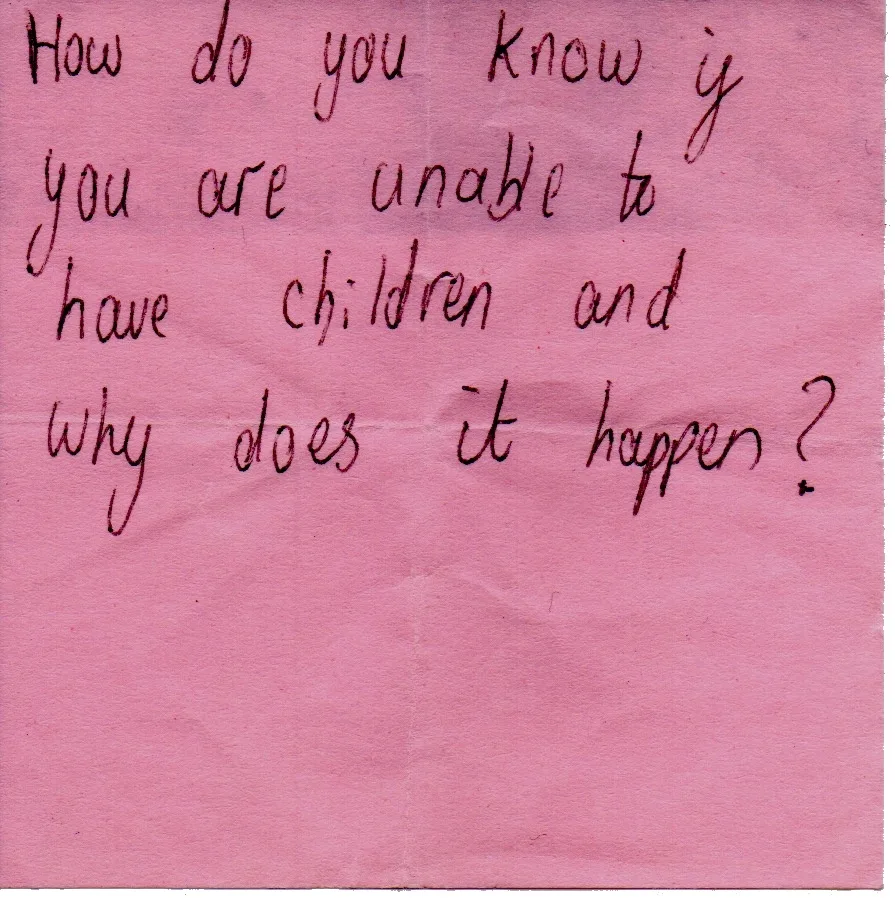 How do you know if
you are unable to
have children and
why does it happen?